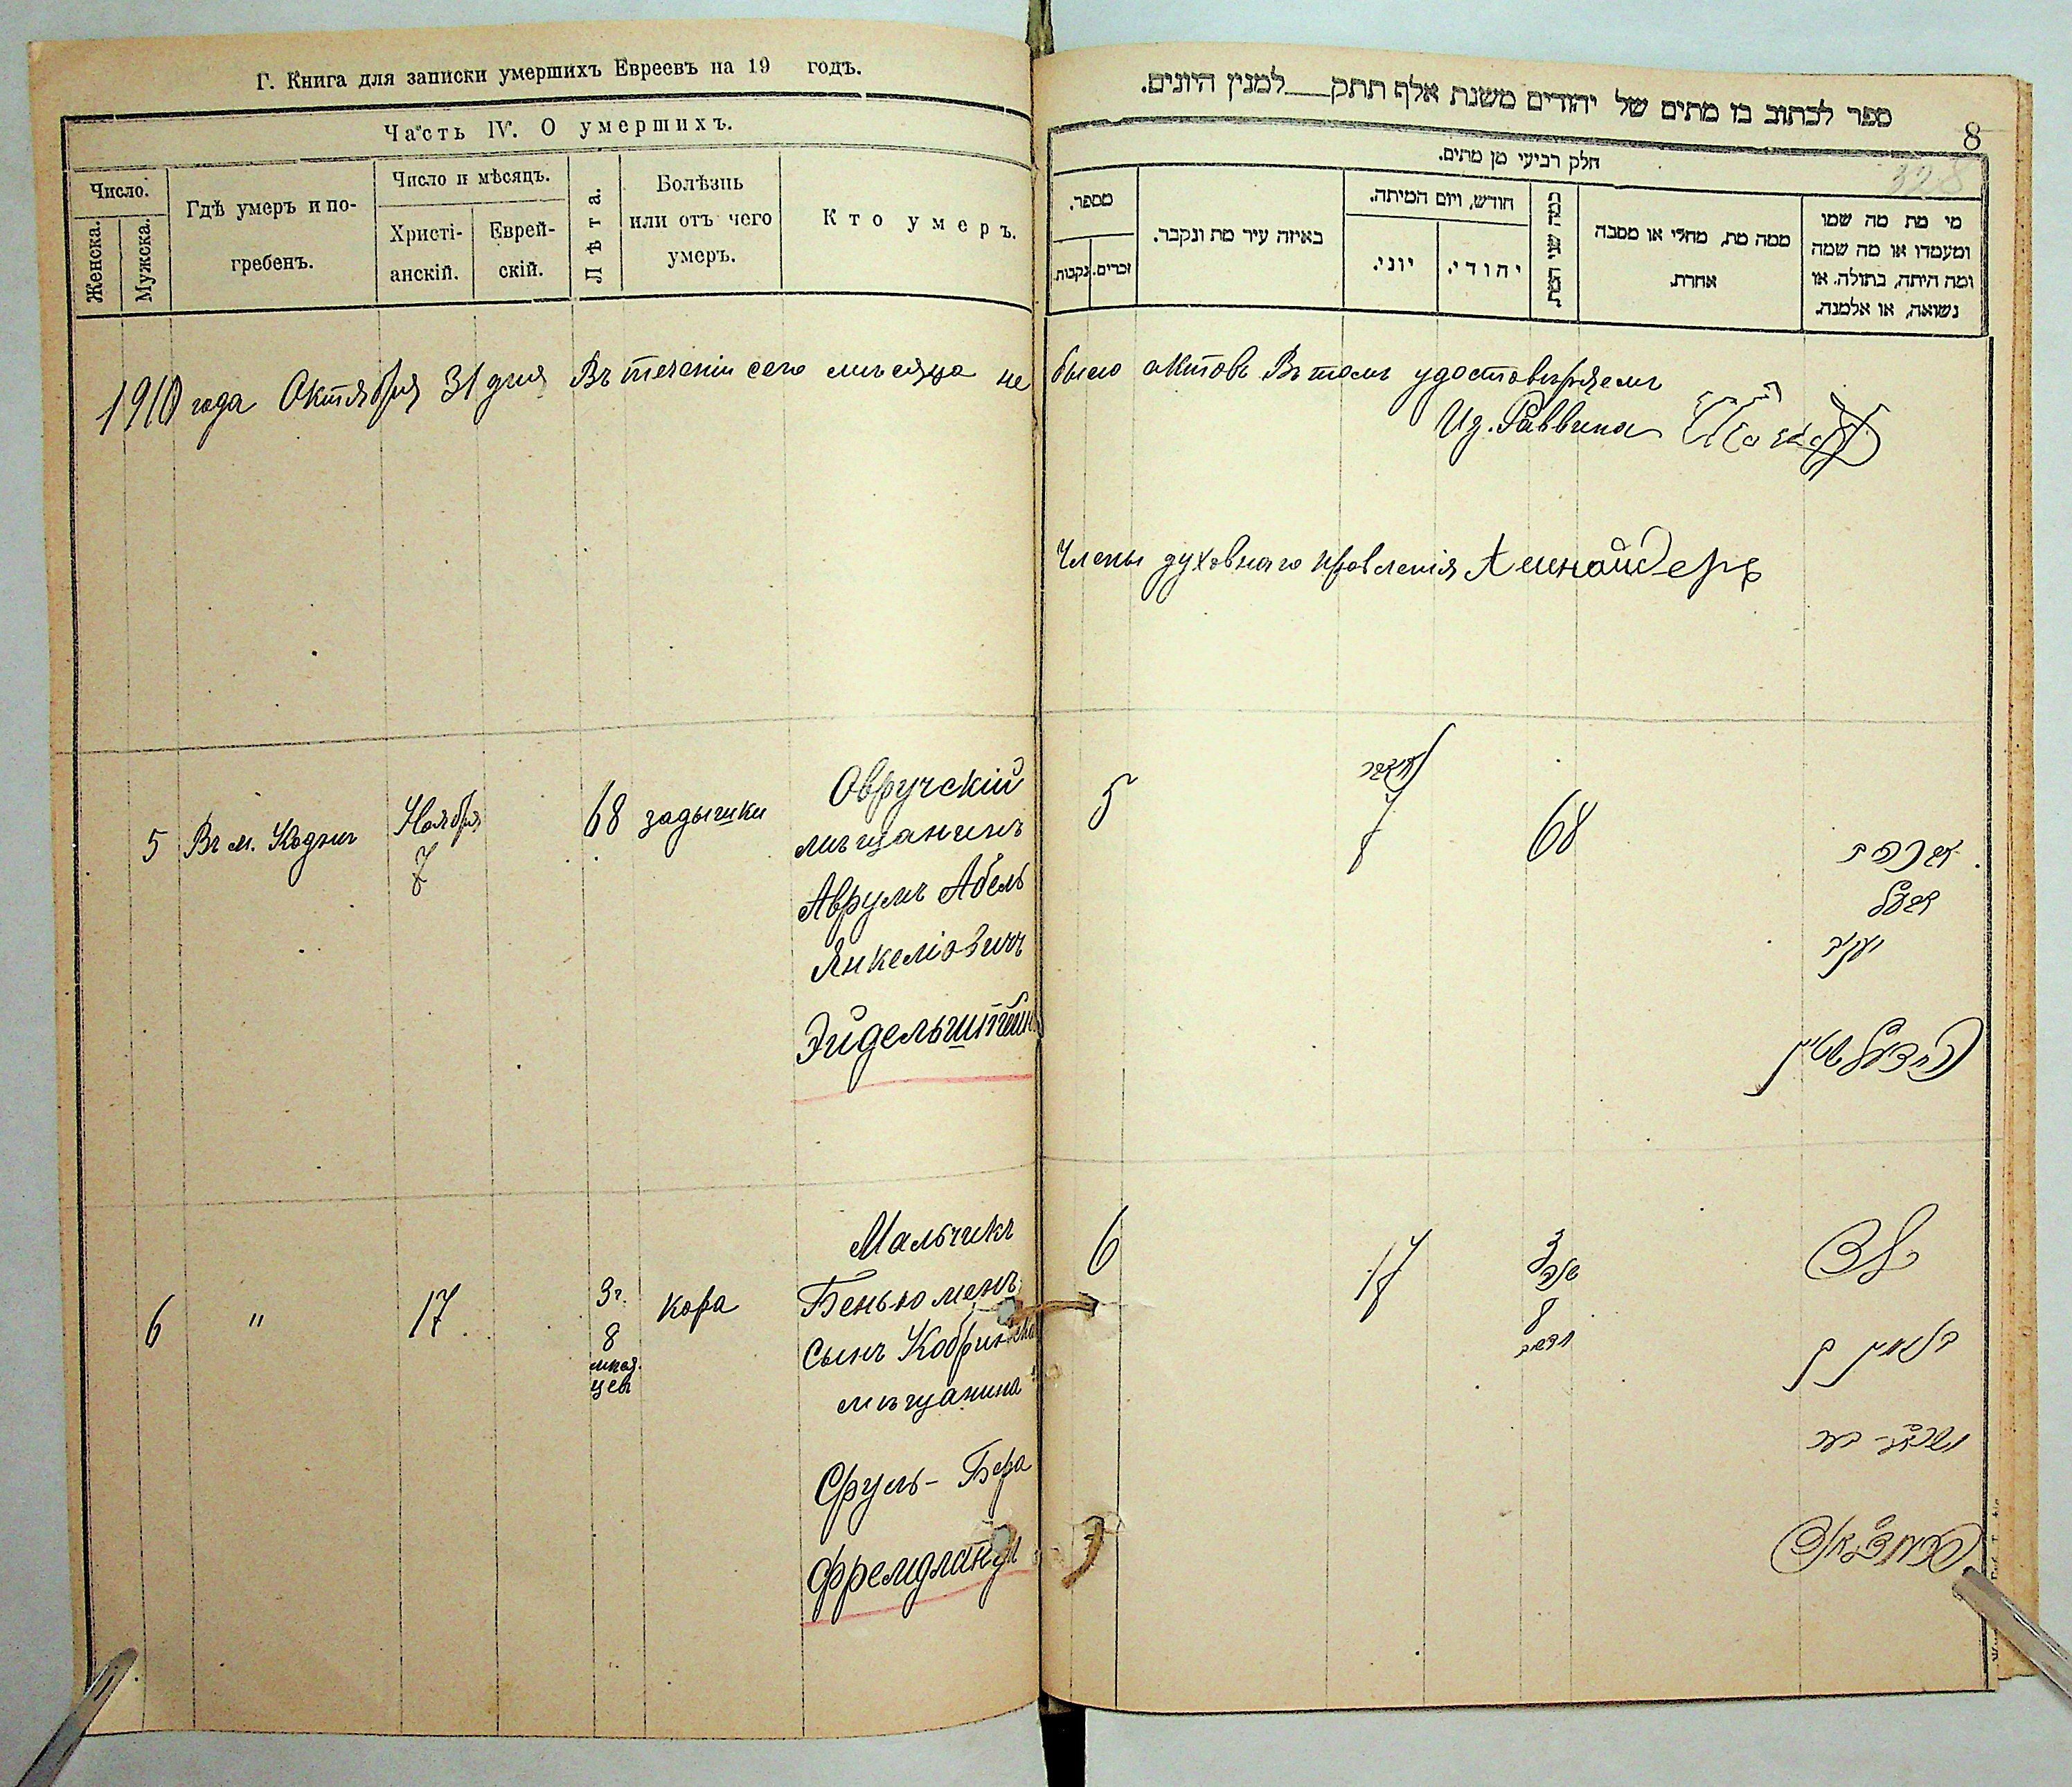 Г. Книга для записки умершихъ Евреевъ на 19 годъ.
Часть IV. О умершихъ.
Число.
Женска.
Мужска.
Гдѣ умеръ и по-
гребенъ.
Число и мѣсяцъ.
Христі-
анскій.
Еврей-
скій.
Лѣта.
Болѣзнь
или отъ чего
умеръ.
Кто умеръ.
1910 года Октября 31 дня Въ теченіи сего мѣсяца не
5 Въ м. Кодни Ноября 7 68 задышки
Овручскій
мѣщанинъ
Аврумъ Абель
Янкеліовичъ
Эйдельштейнъ
6 " 17 3 г. 8 мѣся-
цев кора
Мальчикъ
Беньюменъ
сынъ
мѣщанина
Сруль-Бера
Фремдланда
ספר לכתוב בו מתים של יהודים משנת אלף תתק לממנין היונים.
8
328
חלק רביעי מן מתים.
מספר.
נקבות.
זכרים.
באיזה עיר מת ונקבר.
חודש, ויום המיתה.
יוני.
יהודי.
כמה שני המת.
ממה מת, מחלי או מסבה
אחרת.
מי מת מה שמו
ומעמדו או מה שמה
ומה היתה, בתולה, או
נשואה, או אלמנה.
было актовъ Въ томъ удостовѣряемъ
Из. Раввина
Члены духовнаго правленія А шнайдеръ
5
7
68
אברהם
אבעל
יעקב
איידעלשטיין
6
17
3
8
ילד
בנימין בן
ישראל בער
פרעמדלאנד